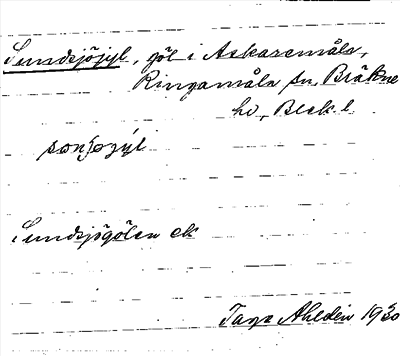 Sundsjöjyl, göl i Askaremåla,
Ringamåla sn, Bräkne
hd, Blek. l.
Sundsjögölen ek
Tage Ahldén 1930